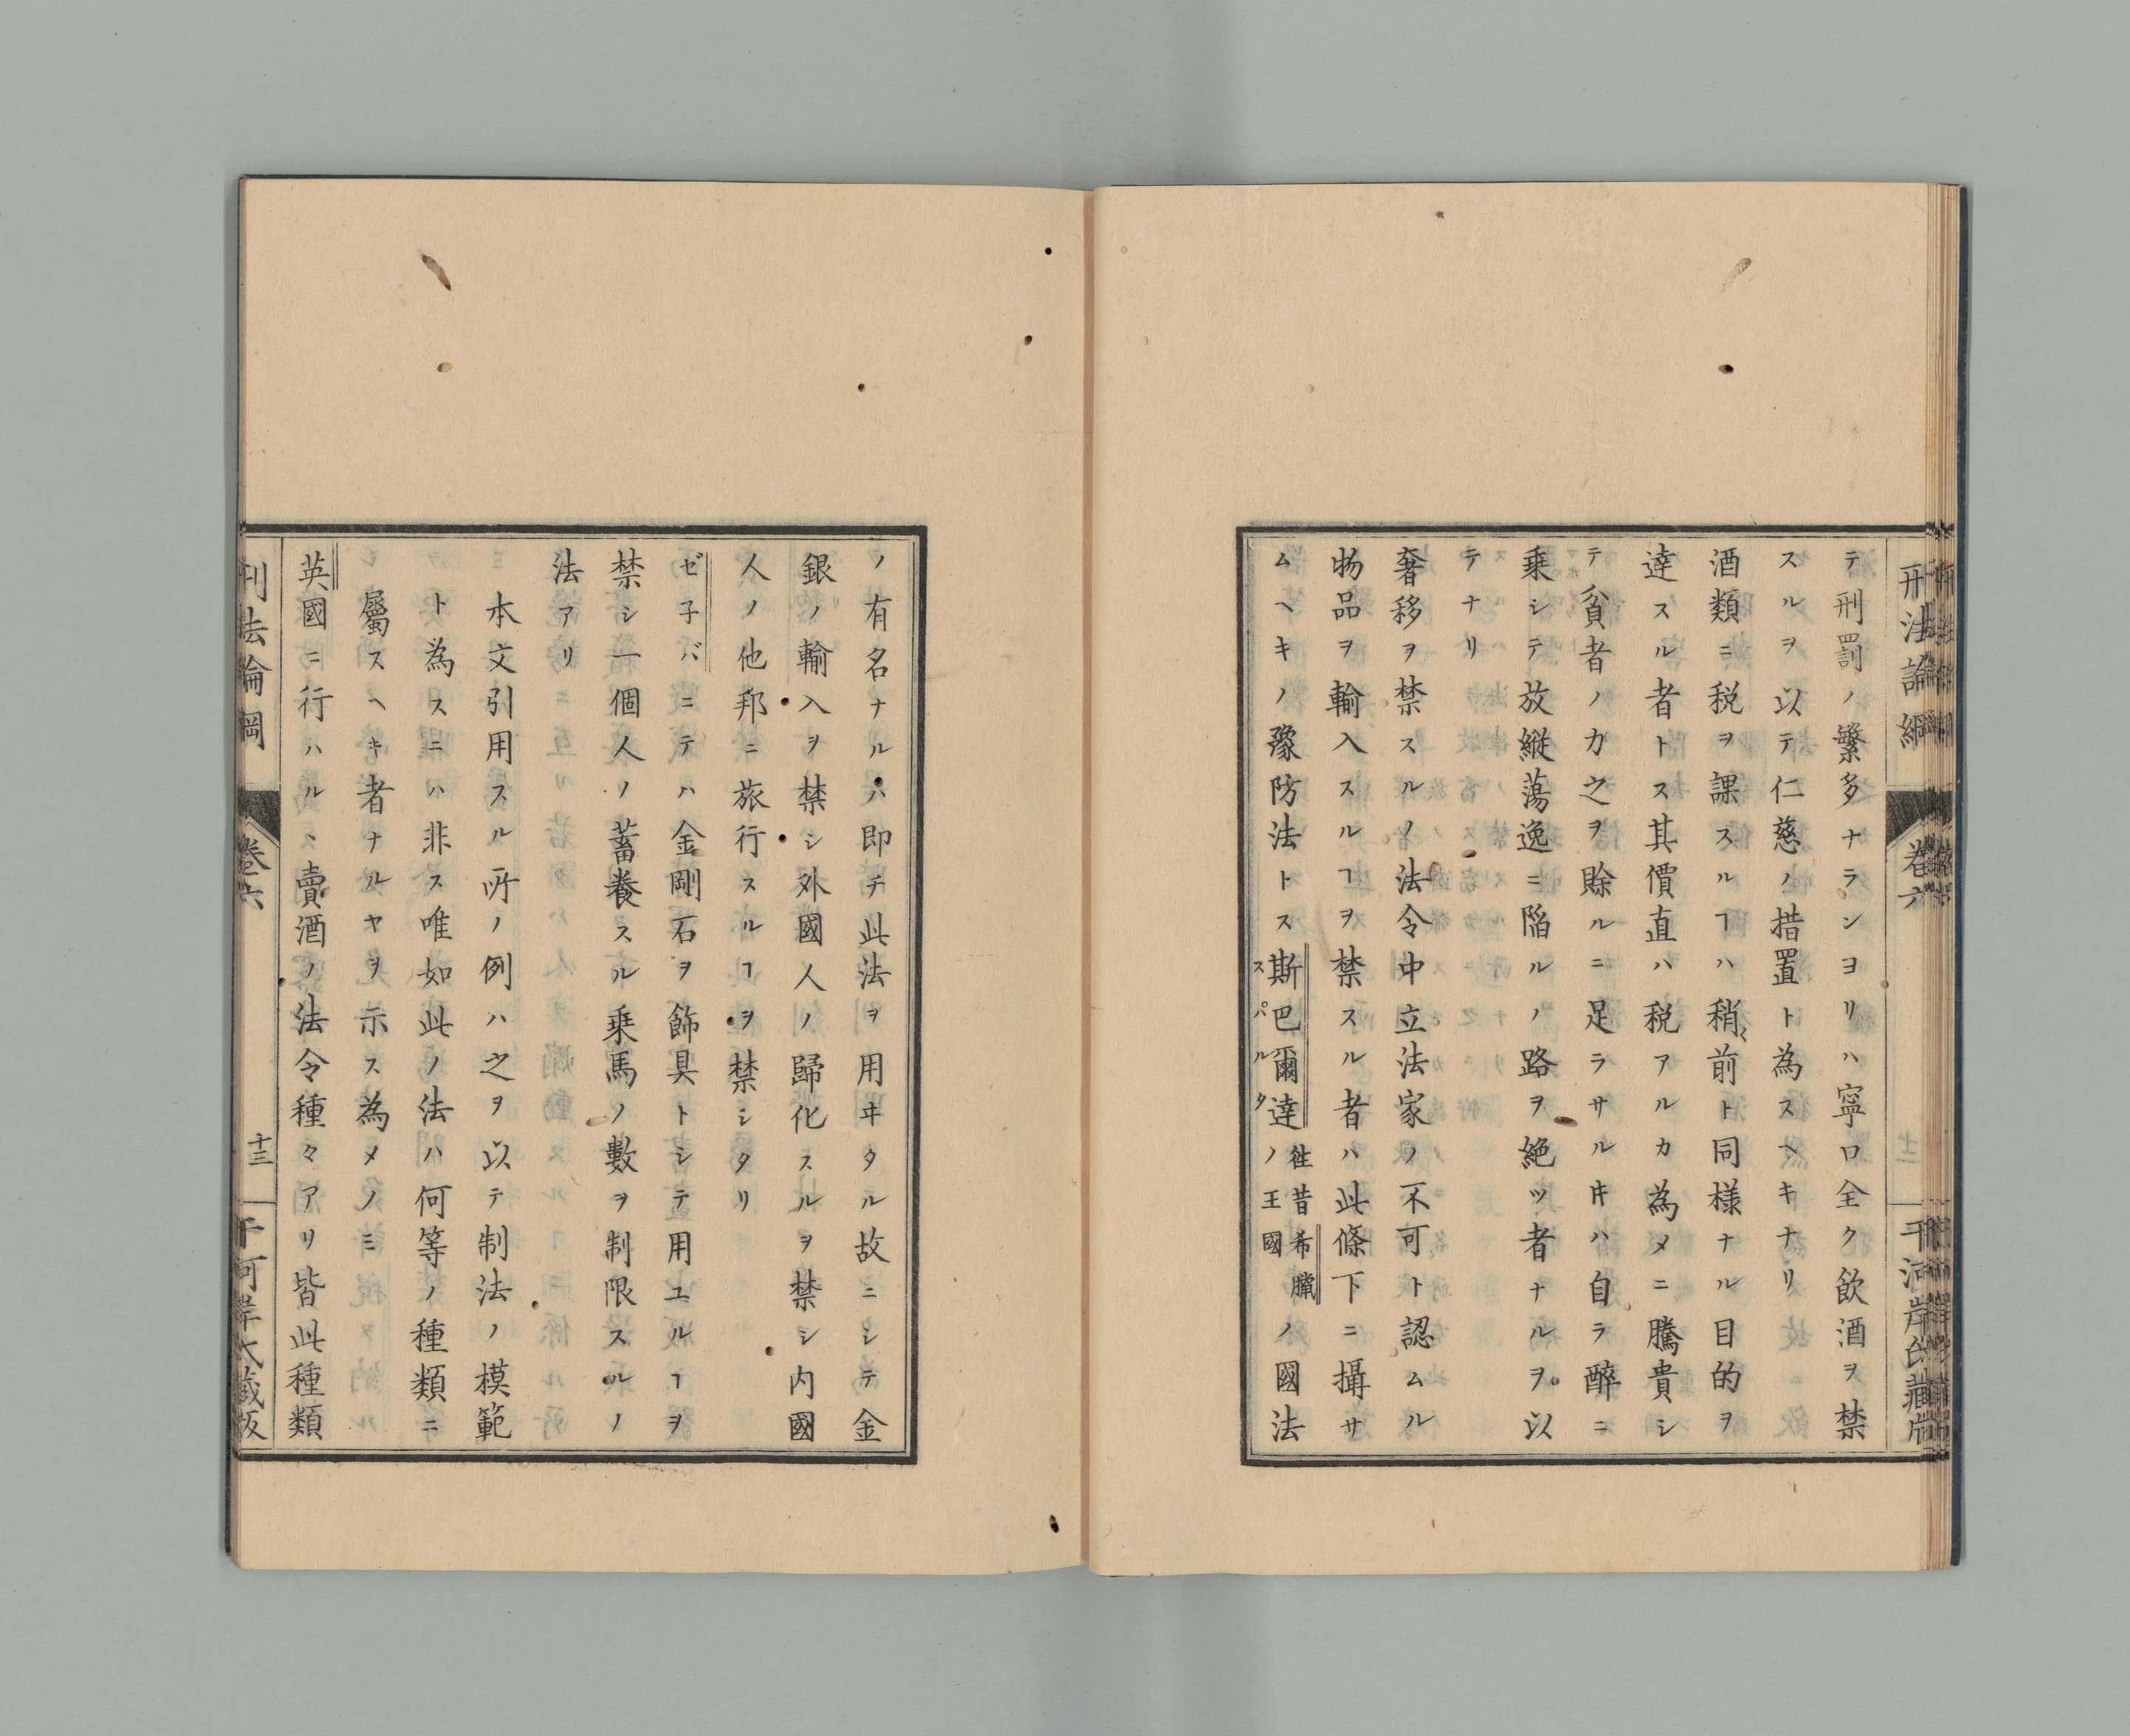 刑法論綱
卷六
テ刑罰ノ繁多ナランヨリハ寧ロ全ク飲酒ヲ禁
スルヲ以テ仁慈ノ措置ト為スヘキナリ
酒類ニ税ヲ課スルヿハ稍〻前ト同様ナル目的ヲ
達スル者トス其價直ハ税アルカ為メニ騰貴シ
テ貧者ノ力之ヲ賖ルニ足ラサルトキハ自ラ醉ニ
乗シテ放縱蕩逸ニ陥ルノ路ヲ絶ツ者ナルヲ以
テナリ
奢移ヲ禁スルノ法令中立法家ノ不可ト認ムル
物品ヲ輸入スルヿヲ禁スル者ハ此條下ニ攝サ
ムヘキノ豫防法トス斯巴爾達往昔希臘ノ王國ノ國法
スパルタ
ノ有名ナルハ即チ此法ヲ用ヰタル故ニシテ金
銀ノ輸入ヲ禁シ外國人ノ歸化スルヲ禁シ内國
人ノ他邦ニ旅行スルヿヲ禁シタリ
ゼ子バニテハ金剛石ヲ飾具トシテ用ユルヿヲ
禁シ一個人ノ蓄養スル乗馬ノ數ヲ制限スルノ
法アリ
本文引用スル所ノ例ハ之ヲ以テ制法ノ模範
ト為スニハ非ス唯如此ノ法ハ何等ノ種類ニ
屬スヘキ者ナルヤヲ示ス為メノミ
英國ニ行ハルヽ賣酒ノ法令種々アリ皆此種類
刑法論綱
卷六
十三